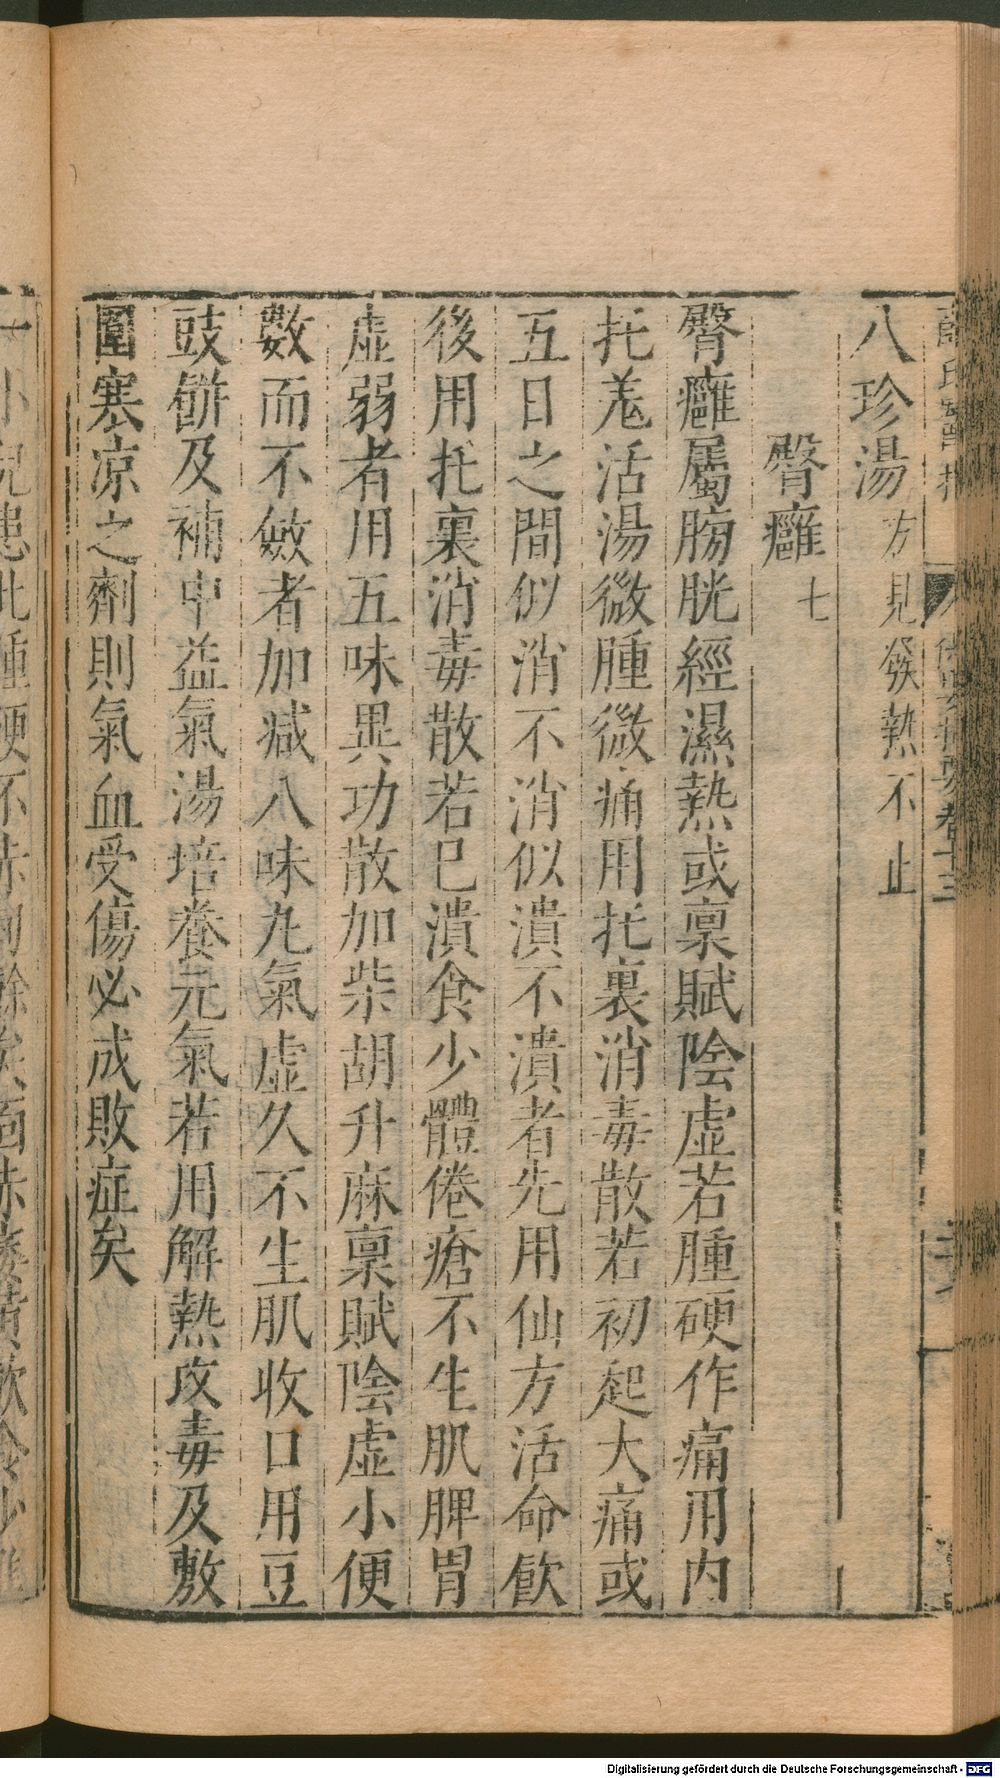 八珍湯方見發熱不止
臀癰七
臀癰屬膀胱經濕熱或禀賦陰虛若腫硬作痛用内
托羗活湯微腫微痛用托裏消毒散若初起大痛或
五日之間似消不消似潰不潰者先用仙方活命飲
後用托裏消毒散若已潰食少體倦瘡不生肌脾胃
虛弱者用五味異功散加柴胡升麻禀賦陰虛小便
數而不斂者加减八味丸氣虛久不生肌收口用豆
豉餅及補中益氣湯培養元氣若用解熱攻毒及敷
圍寒凉之劑則氣血受傷必成敗症矣
Digitalisierung gefördert durch die Deutsche Forschungsgemeinschaft - DFG